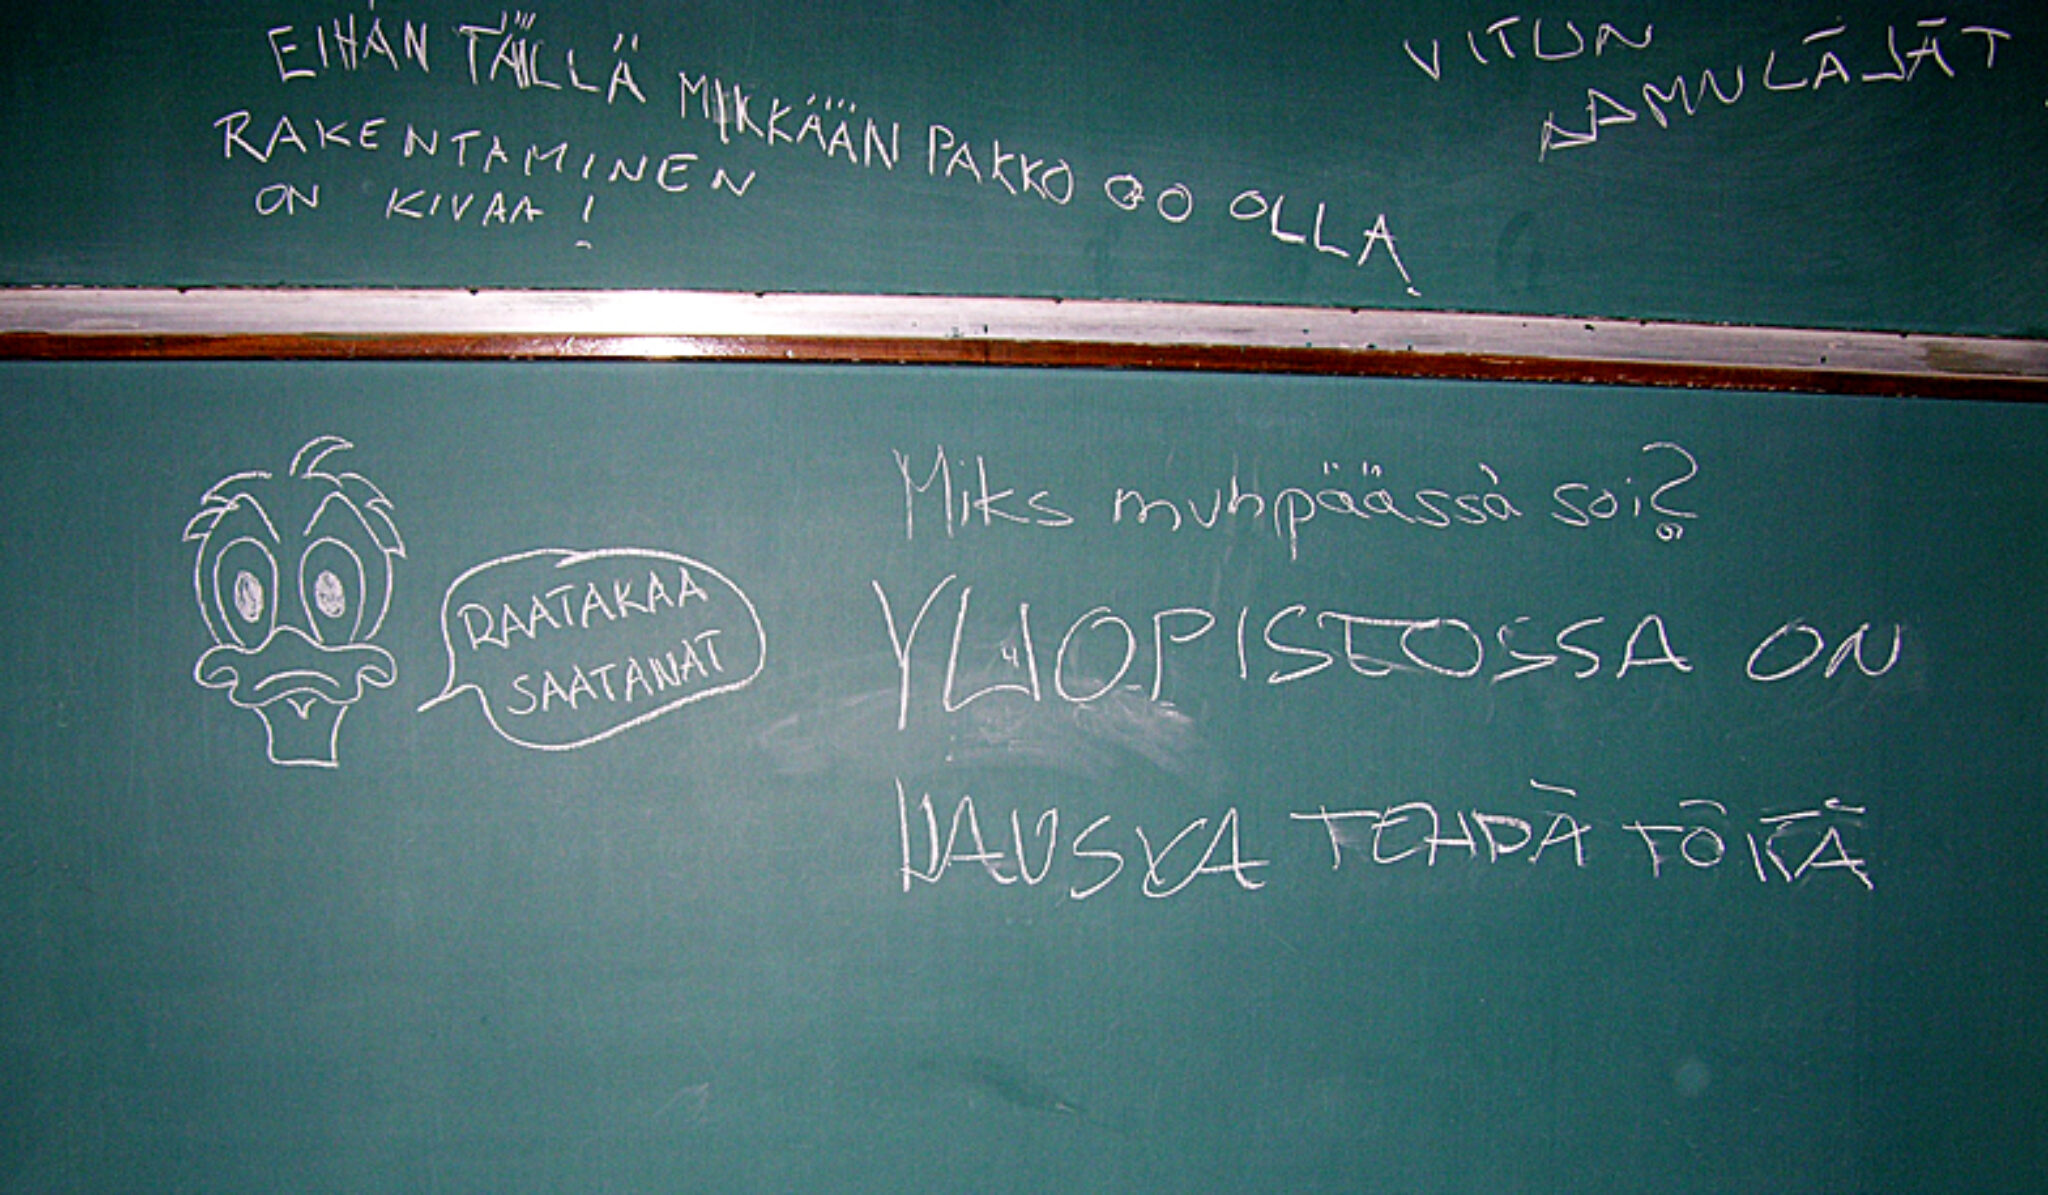 EIHÄN TÄÄLLÄ MIKKÄÄN PAKKO OO OLLA.
RAKENTAMINEN
ON KIVAA!
VITUN
AAMULÄJÄT
RAATAKAA
SAATANAT
Miks muhpäässä soi?
YLIOPISTOSSA ON
HAUSKA TEHDÄ TÖITÄ